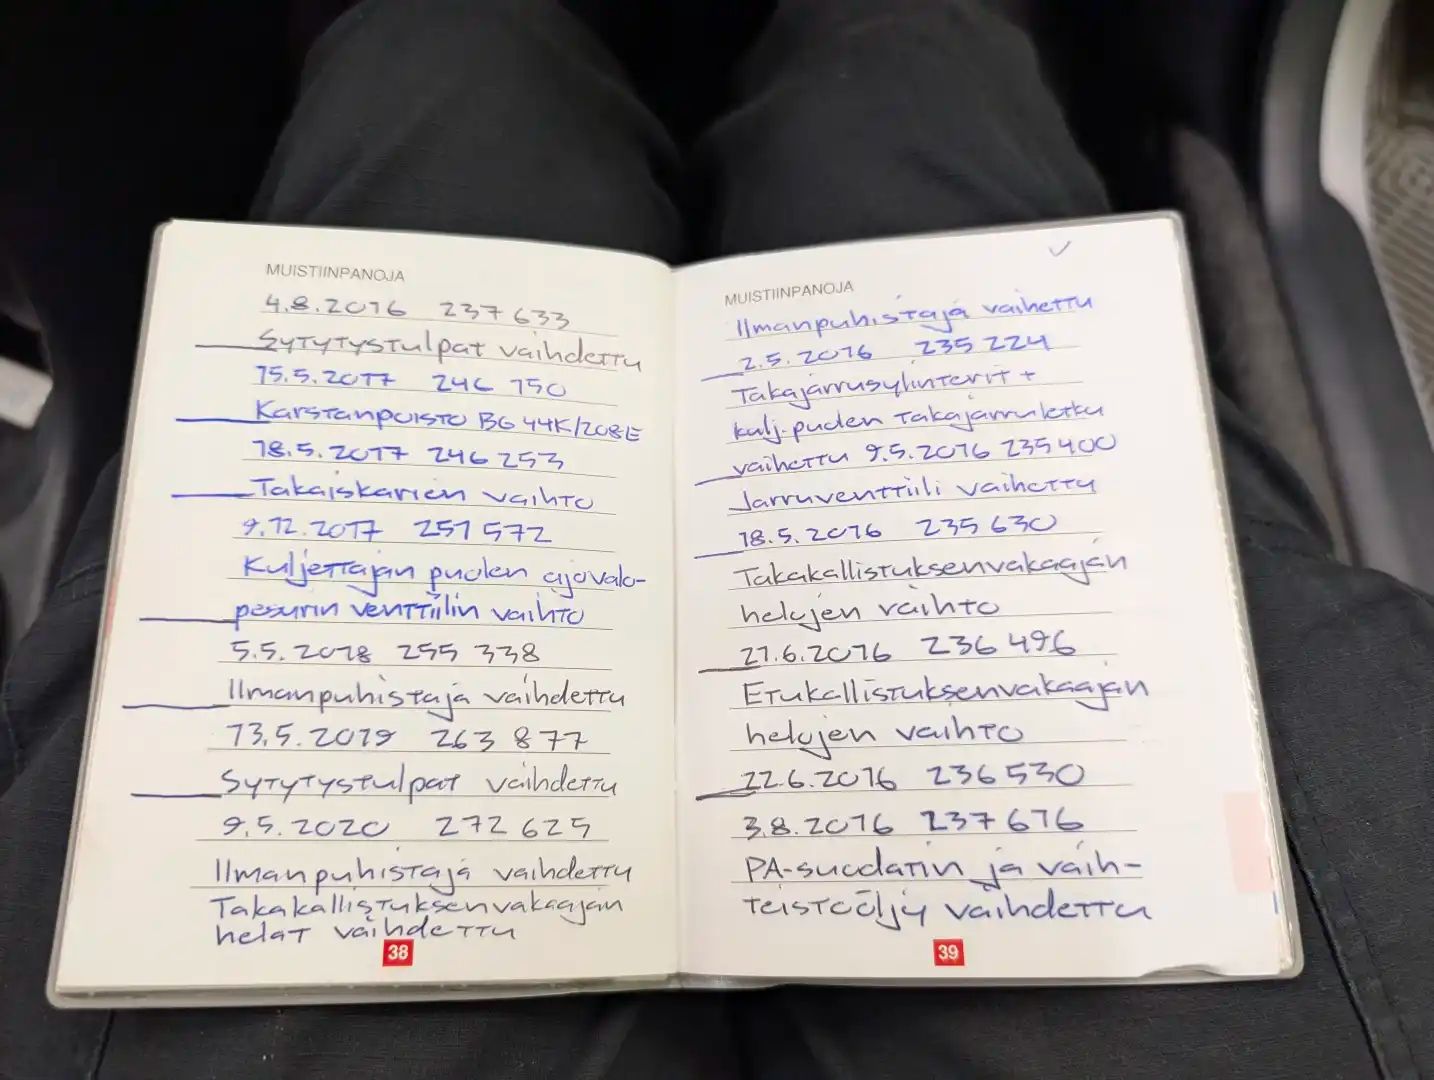 MUISTIINPANOJA
4.8.2016 237 633
Sytytystulpat vaihdettu
15.5.2017 246 150
Karstanpoisto BG 44K/208E
18.5.2017 246 253
Takaiskarien vaihto
9.12.2017 251 572
Kuljettajan puolen ajovalo-
pesurin venttiilin vaihto
5.5.2018 255 338
Ilmanpuhistaja vaihdettu
13.5.2019 263 877
Sytytystulpat vaihdettu
9.5.2020 272 625
Ilmanpuhistaja vaihdettu
Takakallistuksenvakaajan
helat vaihdettu
38
MUISTIINPANOJA
Ilmanpuhistaja vaihettu
2.5.2016 235 224
Takajarrusylinterit +
kulj. puolen takajarruletku
vaihettu 9.5.2016 235 400
Jarruventtiili vaihettu
18.5.2016 235 630
Takakallistuksenvakaajan
helojen vaihto
21.6.2016 236 496
Etukallistuksenvakaajan
helojen vaihto
22.6.2016 236 530
3.8.2016 237 616
PA-suodatin ja vaih-
teistoöljy vaihdettu
39